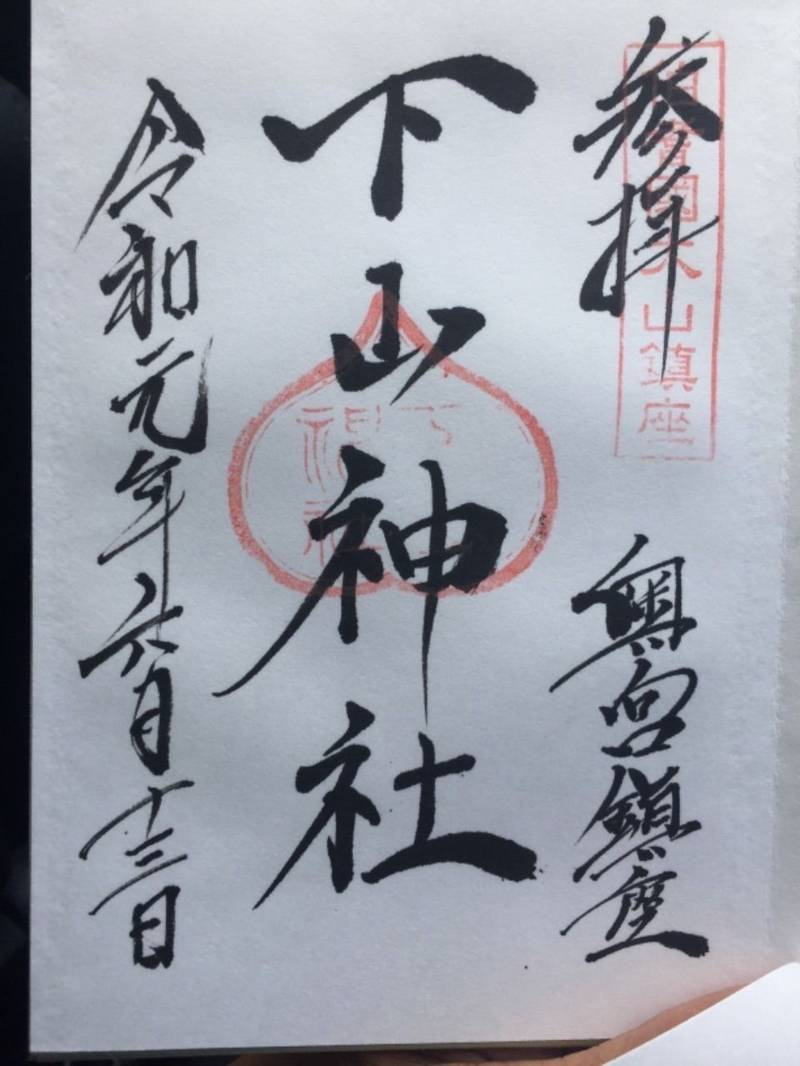 参拝
奥宮鎮座
下山神社
令和元年六月十三日
國大山鎮座